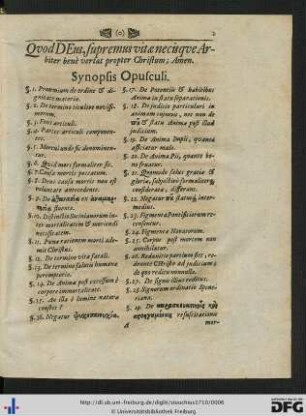 (0)
QVod DEus, supremus vitæ necisque Ar-
biter benè vertat propter Christum; Amen.
Synopsis Opusculi.
§. 1. Proœmium de ordine & di-
gnitate materiæ.
§. 2. De termino vicissim
§. 3. Fons articuli.
§. 4. Partes articuli componen-
tes.
§. 5. Mors unde sic denominetur.
§. 6. Quid mors formaliter sit.
§. 7. Causa mortis peccatum.
§. 8. Deus causa mortis non est
voluntate antecedente.
§. 9. De
§. 10. Distinctio Socinianorum in-
ter mortalitatem & moriendi
necessitatem.
§. 11. Pœnæ rationem mors ade-
mit Christus.
§. 12. De termino vitæ fatali.
§. 13. De termino salutis humanæ
peremptorio.
§. 14. De Anima post excessum è
corpore immortalitate.
§. 15. An illa è lumine naturæ
constet?
§. 16. Negatur
§. 17. De Potentiis & habitibus
Animæ in statu separationis.
§. 18. De judicio particulari in
animam
& statu Animæ post illud
judicium.
§. 19. De Anima Impii, quanta
afficiatur malo.
§. 20. De Anima Pii, quanto bo-
no fruatur.
§. 21. Quomodo status gratiæ &
gloriæ, subjectivè formaliterq;
considerata, differant.
§. 22. Negatur status inter-
medius.
§. 23. Figmenta Pontificiorum re-
censentur.
§. 24. Figmenta Novatorum.
§. 25. Corpus post mortem non
annihilatur.
§. 26. Reductio particularis est,
adventu CHristi ad judicium;
de quo reditu nonnulla.
§. 27. De signo illius reditus.
§. 28. Signorum ordinatio Spene-
riana.
§. 29. De
resuscitatione
mor-
http://dl.ub.uni-freiburg.de/diglit/
© Universitätsbibliothek Freiburg
DFG